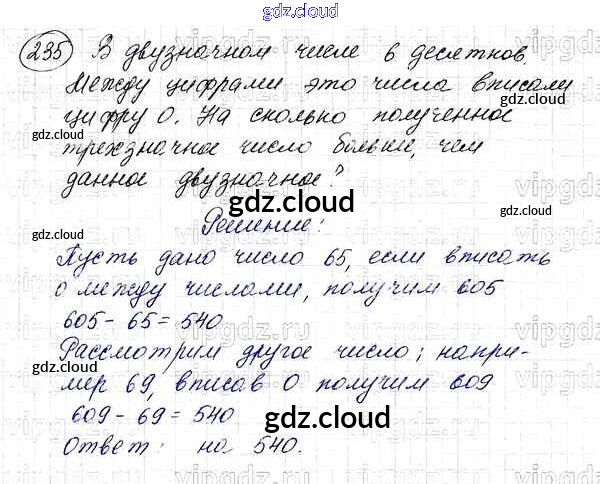 gdz.cloud
235 В двузначном числе 6 десятков.
Между цифрами это числа вписали
цифру 0. На сколько полученное
трехзначное число больше, чем
данное двузначное?
Решение:
Пусть дано число 65, если вписать
0 между числами, получим 605
605 - 65 = 540
Рассмотрим другое число; напри-
мер 69, вписав 0 получим 609
609 - 69 = 540
Ответ: на 540.
gdz.cloud
gdz.cloud
gdz.cloud
gdz.cloud
gdz.cloud
gdz.cloud
gdz.cloud
gdz.cloud